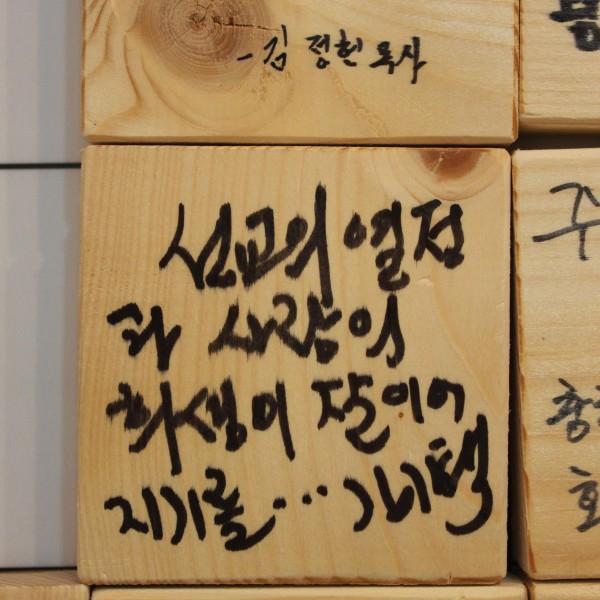 -김 정헌 목사
선교의 열정
과 사랑의
희생이 잘 이어
지기를...
주